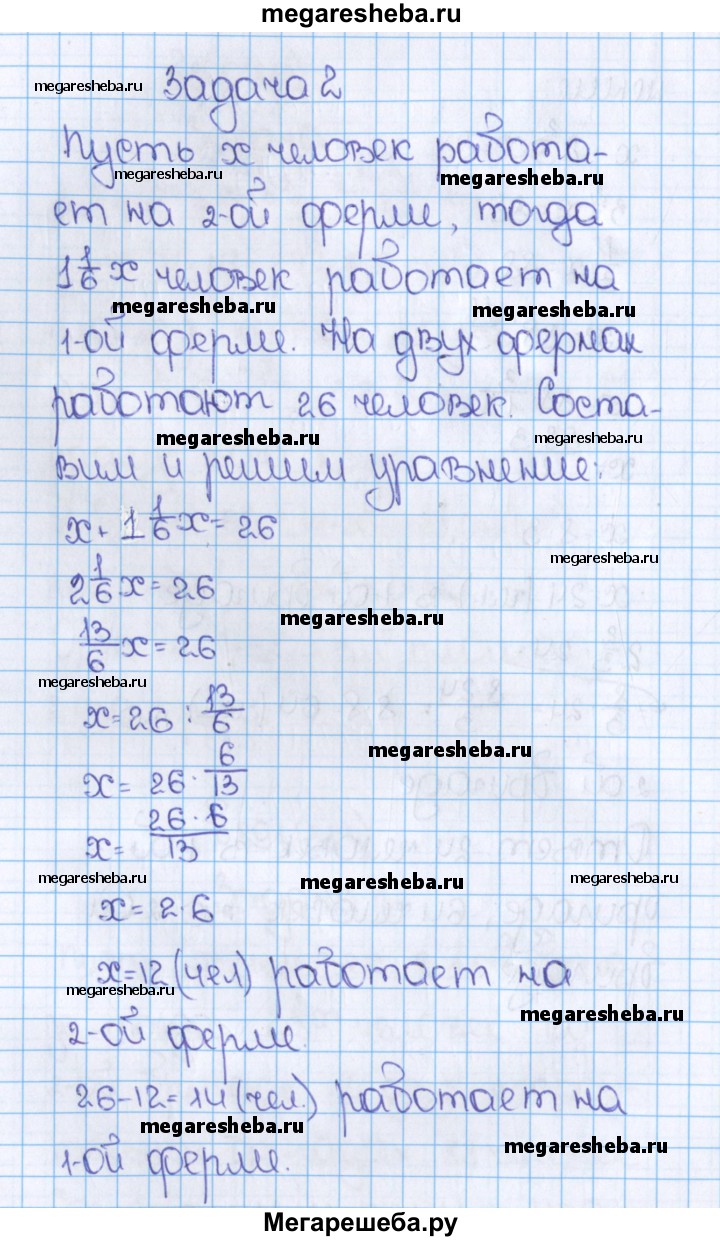 megaresheba.ru
megaresheba.ru
Задача 2
Пусть x человек работа-
megaresheba.ru
megaresheba.ru
ет на 2-ой ферме, тогда
1 1/6 x человек работает на
megaresheba.ru
megaresheba.ru
1-ой ферме. На двух фермах
работают 26 человек. Соста-
megaresheba.ru
megaresheba.ru
вим и решим уравнение:
x + 1 1/6 x = 26
megaresheba.ru
2 1/6 x = 26
megaresheba.ru
13/6 x = 26
megaresheba.ru
x = 26 : 13/6
megaresheba.ru
x = 26 · 6/13
x = 26 · 6/13
megaresheba.ru
megaresheba.ru
megaresheba.ru
x = 2 · 6
x = 12 (чел) работает на
megaresheba.ru
megaresheba.ru
2-ой ферме.
26 - 12 = 14 (чел.) работает на
megaresheba.ru
megaresheba.ru
1-ой ферме.
Мегарешеба.ру